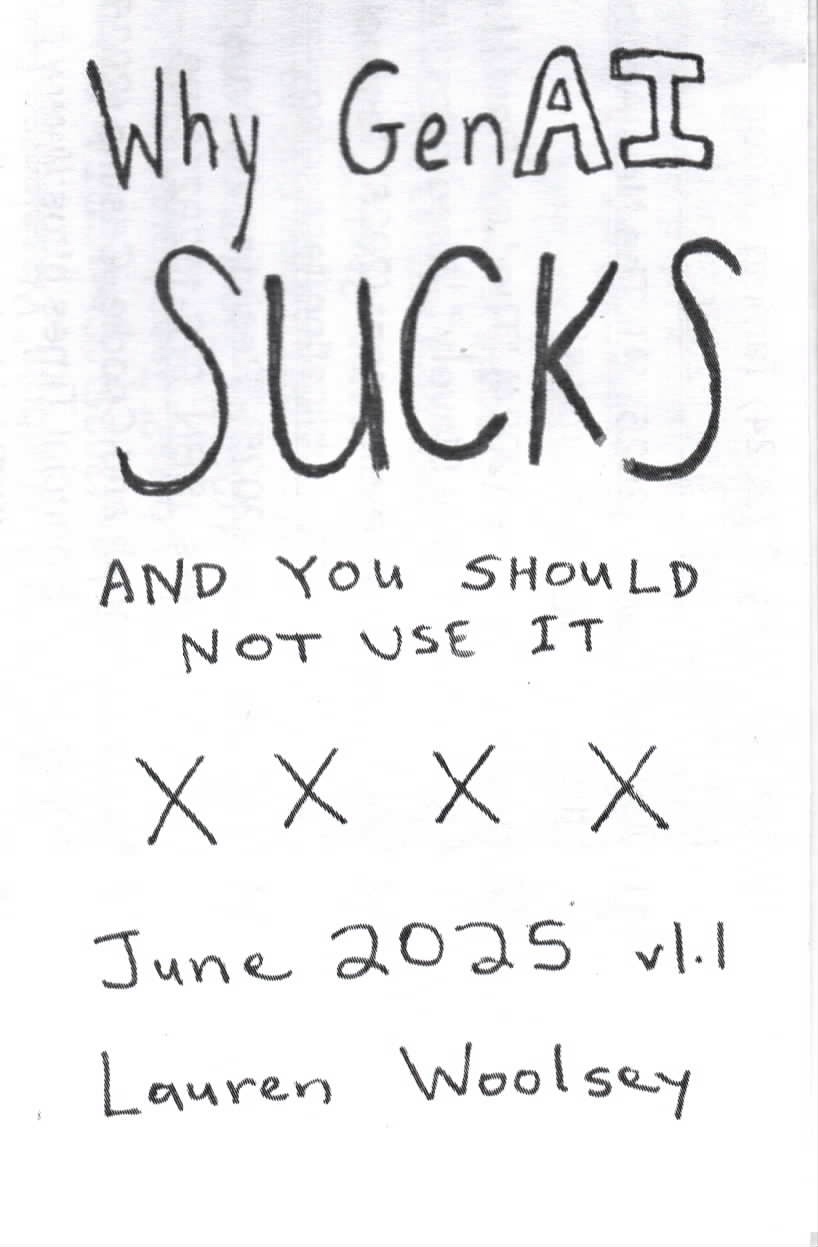 Why GenAI
SUCKS
AND YOU SHOULD
NOT USE IT
X X X X
June 2025 v1.1
Lauren Woolsey